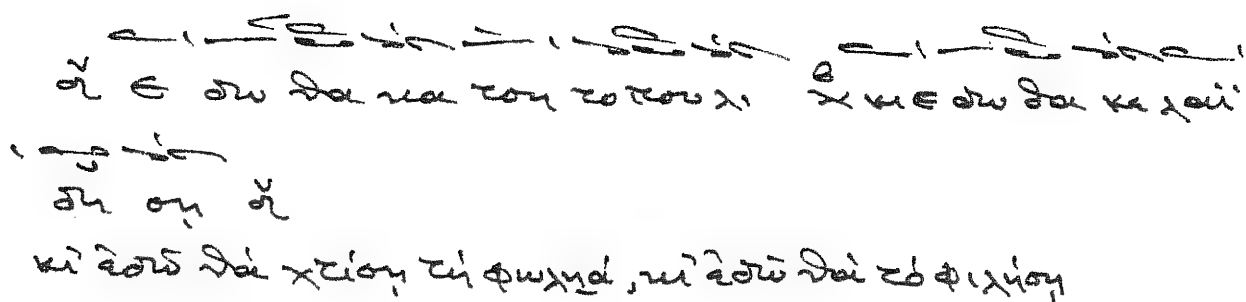 ἄ ε δω θα κα τση το που λι χ κι ε δω θα κε λαϊ
δή ση ἄ
κι' ἐδῶ θὰ χτίση τὴ φωληά, κι' ἐδῶ θὰ τὸ φιλήση